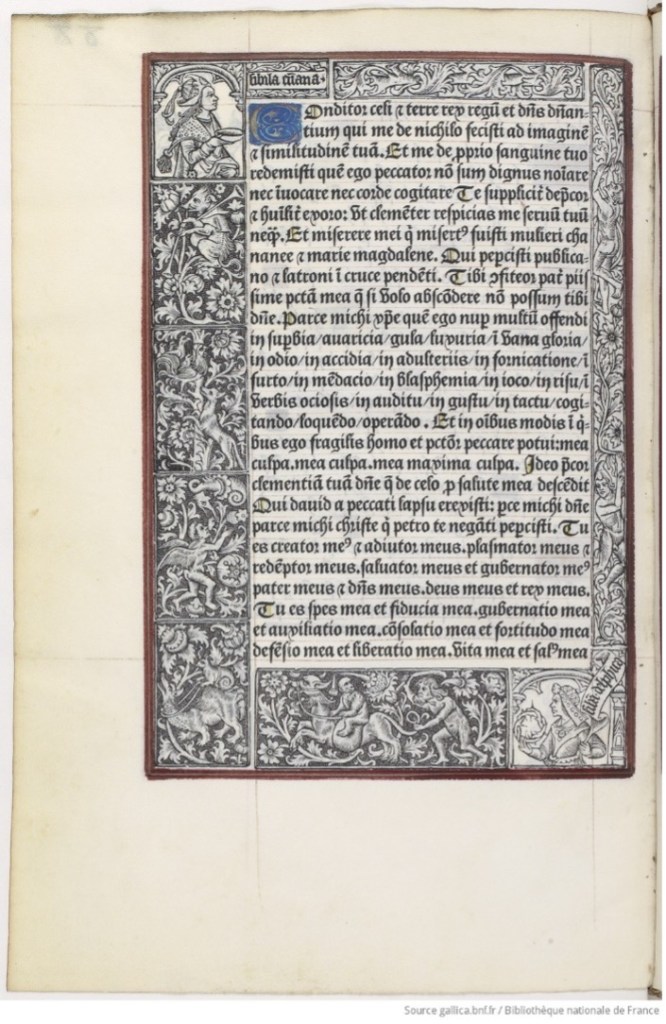 sibila cūana
COnditor celi ⁊ terre rex regū et dn̄s dn̄an-
tium qui me de nichilo fecisti ad imaginē
⁊ similitudinē tuā. Et me de ꝓprio sanguine tuo
redemisti quē ego peccator nō sum dignus noīare
nec īuocare nec corde cogitare Te supplicit̄ dep̄cor
⁊ hūlit̄ exoro: Vt clemēter respicias me seruū tuū
neq̄ꝫ. Et miserere mei q̄ misertꝰ fuisti mulieri cha
nanee ⁊ marie magdalene. Qui pepcisti publica-
no ⁊ latroni ī cruce pendēti. Tibi ↄfiteor pat̄ piis
sime pctā mea q̄ si volo abscōdere nō possum tibi
dn̄e. Parce michi xp̄e quē ego nuꝑ multū offendi
in suꝑbia/auaricia/gula/luxuria/ī vana gloria/
in odio/in accidia/in adulteriis/in fornicatione/ī
furto/in mēdacio/in blasphemia/in ioco/in risu/ī
verbis ociosis/in auditu/in gustu/in tactu/cogi-
tando/loquēdo/operādo. Et in oībus modis ī q̄-
bus ego fragilis homo et pctōr peccare potui: mea
culpa. mea culpa. mea maxima culpa. Ideo p̄cor
clementiā tuā dn̄e q̄ de celo ꝓ salute mea descēdit
Qui dauid a peccati lapsu erexisti: ꝑce michi dn̄e
parce michi christe q̄ petro te negāti peꝑcisti. Tu
es creator meꝰ ⁊ adiutor meus. plasmator meus ⁊
redēptor meus. saluator meus et gubernator meꝰ
pater meus ⁊ dn̄s meus. deus meus et rex meus.
Tu es spes mea et fiducia mea. gubernatio mea
et auxiliatio mea. cōsolatio mea et fortitudo mea
defēsio mea et liberatio mea. Vita mea et salꝰ mea
Source gallica.bnf.fr / Bibliothèque nationale de France